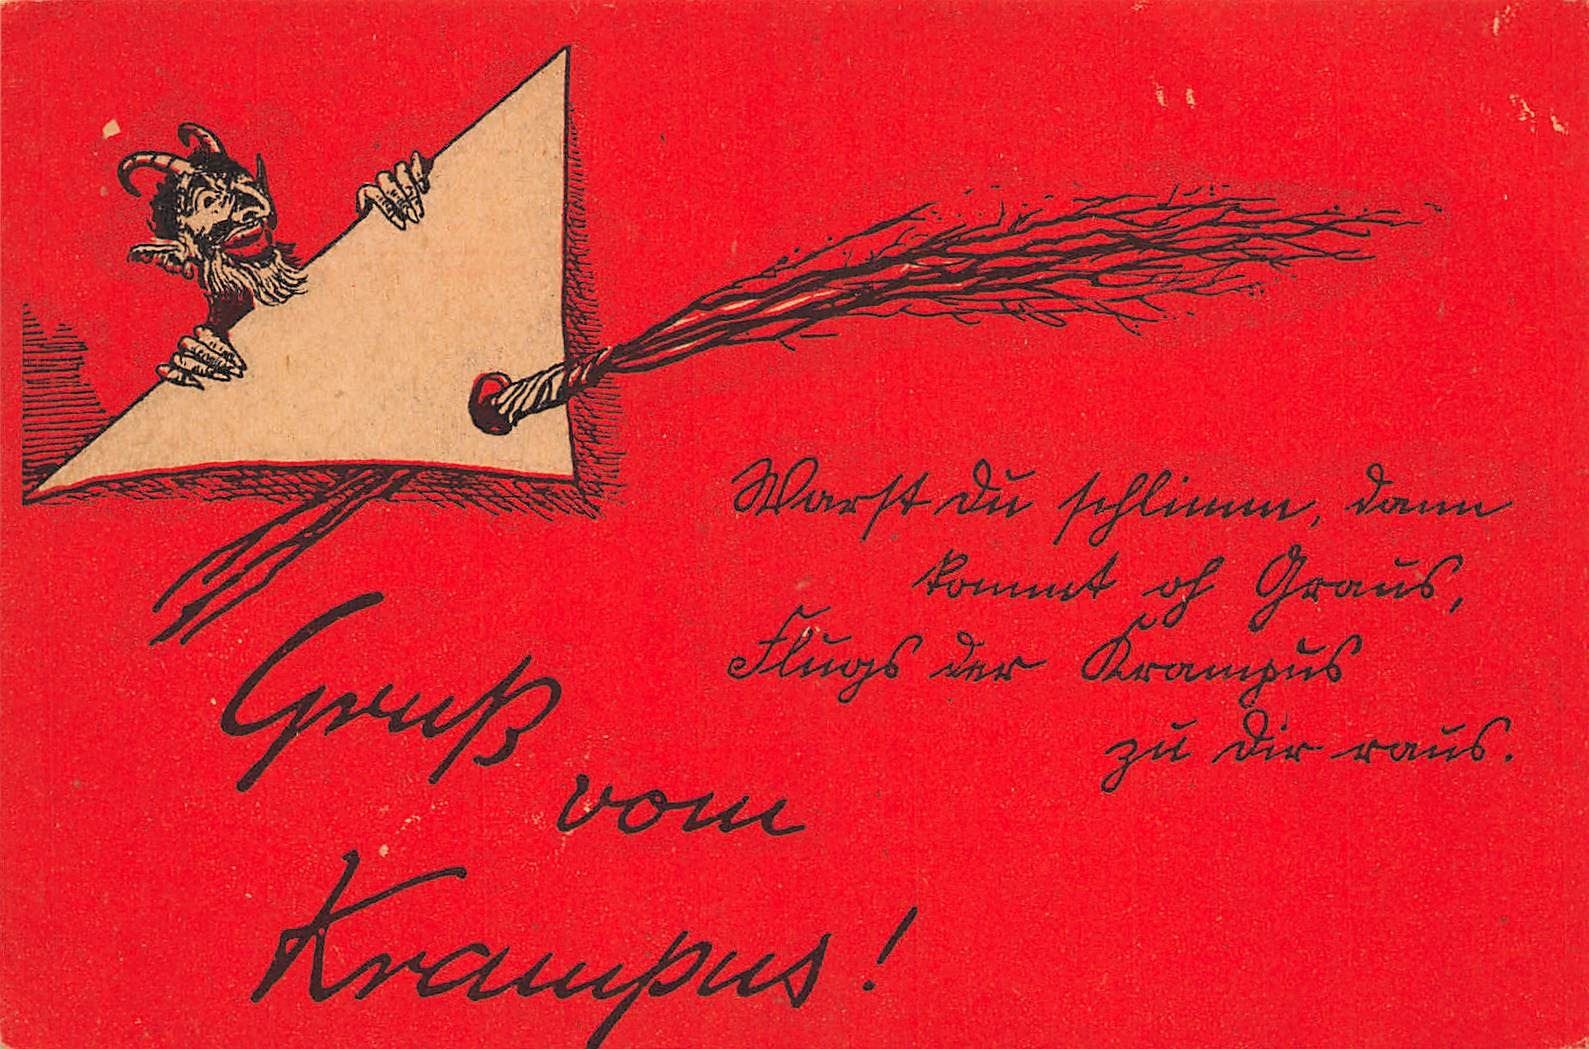 Gruß
vom
Krampus!
Warst du schlimm, dann
kommt oh Graus,
Flugs der Krampus
zu dir raus.